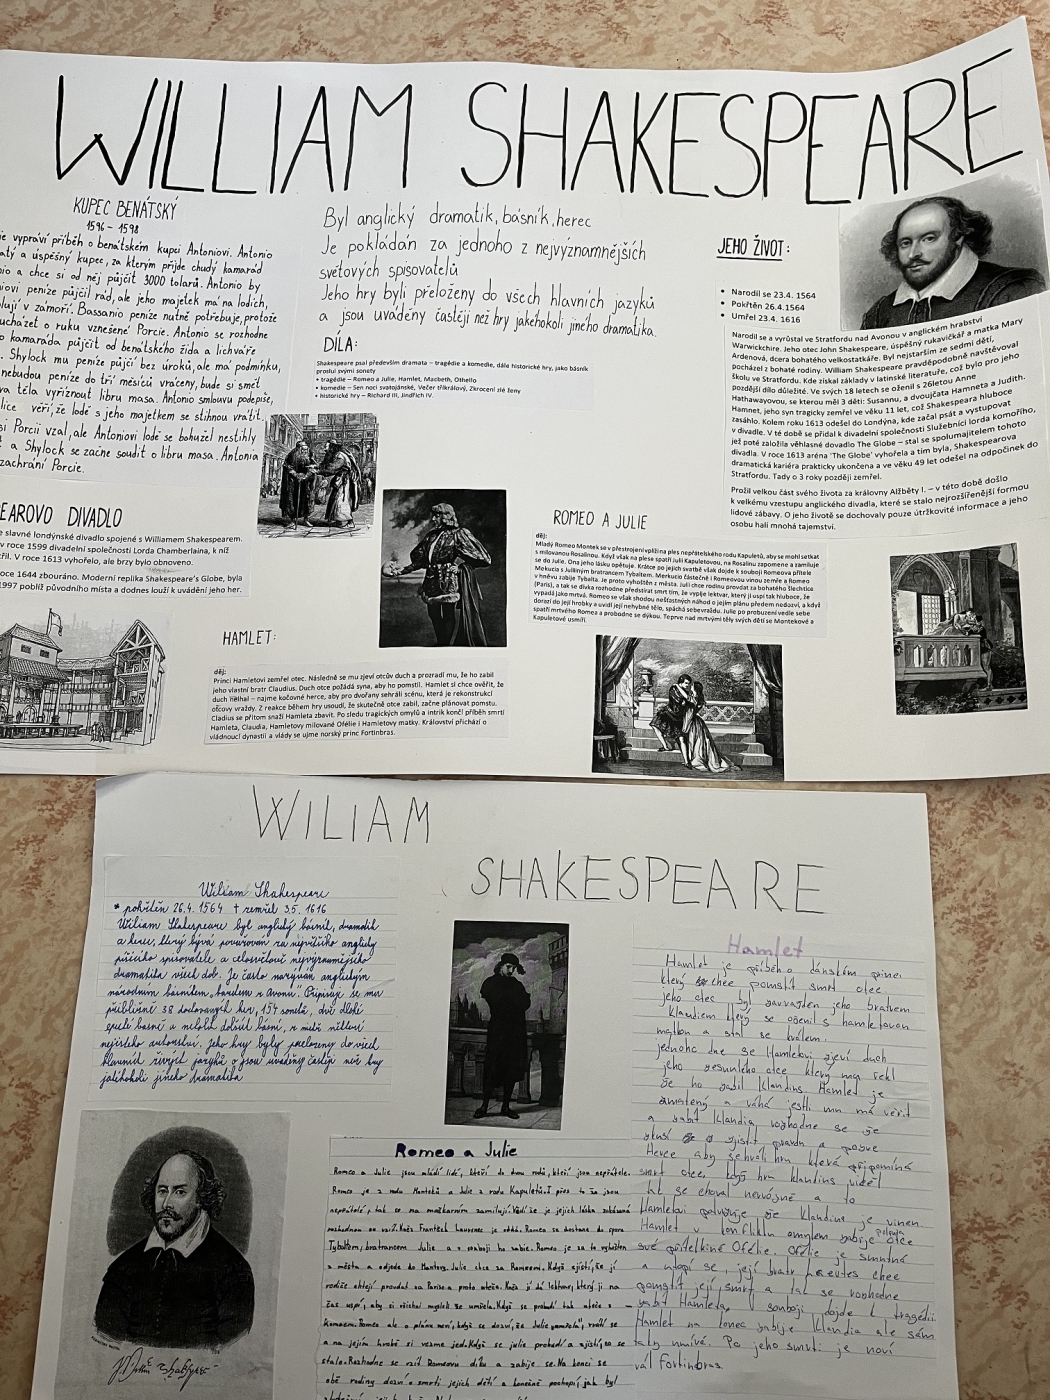 WILLIAM SHAKESPEARE
KUPEC BENÁTSKÝ
1596 - 1598
ie vypráví příběh o benátském kupci Antoniovi. Antonio
atý a úspěšný kupec, za kterým přijde chudý kamarád
nio a chce si od něj půjčit 3000 tolarů. Antonio by
niovi peníze půjčil rád, ale jeho majetek má na lodích,
lují v zámoří. Bassanio peníze nutně potřebuje, protože
ucházet o ruku vznešené Porcie. Antonio se rozhodne
o kamaráda půjčit od benátského žida a lichváře
. Shylock mu peníze půjčí bez úroků, ale má podmínku,
nebudou peníze do tří měsíců vráceny, bude si smět
va těla vyříznout libru masa. Antonio smlouvu podepíše,
lice věří, že lodě s jeho majetkem se stihnou vrátit.
si Porcii vzal, ale Antoniovi lodě se bohužel nestihly
t a Shylock se začne soudit o libru masa. Antonia
zachrání Porcie.
EAROVO DIVADLO
e slavné londýnské divadlo spojené s Williamem Shakespearem.
v roce 1599 divadelní společností Lorda Chamberlaina, k níž
třil. V roce 1613 vyhořelo, ale brzy bylo obnoveno.
oce 1644 zbouráno. Moderní replika Shakespeare's Globe, byla
1997 poblíž původního místa a dodnes louží k uvádění jeho her.
Byl anglický dramatik, básník, herec
Je pokládán za jednoho z nejvýznamnějších
světových spisovatelů
Jeho hry byli přeloženy do všech hlavních jazyků
a jsou uváděny častěji než hry jakéhokoli jiného dramatika.
DÍLA:
Shakespeare psal především dramata – tragédie a komedie, dále historické hry, jako básník
proslul svými sonety
• tragédie – Romeo a Julie, Hamlet, Macbeth, Othello
• komedie – Sen noci svatojánské, Večer tříkrálový, Zkrocení zlé ženy
• historické hry – Richard III, Jindřich IV.
JEHO ŽIVOT:
• Narodil se 23.4. 1564
• Pokřtěn 26.4.1564
• Umřel 23.4. 1616
Narodil se a vyrůstal ve Stratfordu nad Avonou v anglickém hrabství
Warwickshire. Jeho otec John Shakespeare, úspěšný rukavičkář a matka Mary
Ardenová, dcera bohatého velkostatkáře. Byl nejstarším ze sedmi dětí,
pocházel z bohaté rodiny. William Shakespeare pravděpodobně navštěvoval
školu ve Stratfordu. Kde získal základy v latinské literatuře, což bylo pro jeho
pozdější dílo důležité. Ve svých 18 letech se oženil s 26letou Anne
Hathawayovou, se kterou měl 3 děti: Susannu, a dvoujčata Hamneta a Judith.
Hamnet, jeho syn tragicky zemřel ve věku 11 let, což Shakespeara hluboce
zasáhlo. Kolem roku 1613 odešel do Londýna, kde začal psát a vystupovat
v divadle. V té době se přidal k divadelní společnosti Služebníci lorda komořího,
jež poté založila věhlasné dovadlo The Globe – stal se spolumajitelem tohoto
divadla. V roce 1613 aréna 'The Globe' vyhořela a tím byla, Shakespearova
dramatická kariéra prakticky ukončena a ve věku 49 let odešel na odpočinek do
Stratfordu. Tady o 3 roky později zemřel.
Prožil velkou část svého života za královny Alžběty I. – v této době došlo
k velkému vzestupu anglického divadla, které se stalo nejrozšířenější formou
lidové zábavy. O jeho životě se dochovaly pouze útržkovité informace a jeho
osobu halí mnohá tajemství.
HAMLET:
děj:
Princi Hamletovi zemřel otec. Následně se mu zjeví otcův duch a prozradí mu, že ho zabil
jeho vlastní bratr Claudius. Duch otce požádá syna, aby ho pomstil. Hamlet si chce ověřit, že
duch nelhal – najme kočovné herce, aby pro dvořany sehráli scénu, která je rekonstrukcí
otcovy vraždy. Z reakce během hry usoudí, že skutečně otce zabil, začne plánovat pomstu.
Cladius se přitom snaží Hamleta zbavit. Po sledu tragických omylů a intrik končí příběh smrtí
Hamleta, Claudia, Hamletovy milované Ofélie i Hamletovy matky. Království přichází o
vládnoucí dynastii a vlády se ujme norský princ Fortinbras.
ROMEO A JULIE
děj:
Mladý Romeo Montek se v přestrojení vplížína ples nepřátelského rodu Kapuletů, aby se mohl setkat
s milovanou Rosalinou. Když však na plese spatří Julii Kapuletovou, na Rosalinu zapomene a zamiluje
se do Julie. Ona jeho lásku opětuje. Krátce po jejich svatbě však dojde k souboji Romeova přítele
Mekucia s Julliiným bratrancem Tybaltem. Merkucio částečně i Romeovou vinou zemře a Romeo
v hněvu zabije Tybalta. Je proto vyhoštěn z města. Julii chce rodina provdat za bohatého šlechtice
(Paris), a tak se dívka rozhodne předstírat smrt tím, že vypije lektvar, který ji uspí tak hluboce, že
vypadá jako mrtvá. Romeo se však shodou nešťastných náhod o jejím plánu předem nedozví, a když
dorazí do její hrobky a uvidí její nehybné tělo, spáchá sebevraždu. Julie po probuzení vedle sebe
spatří mrtvého Romea a probodne se dýkou. Teprve nad mrtvými těly svých dětí se Montekové a
Kapuletové usmíří.
WILIAM
SHAKESPEARE
Wiliam Shakespeare
* pokřtěn 26.4. 1564 † zemřel 3.5. 1616
Wiliam Shakespeare byl anglický básník, dramatik
a herec, který bývá považován za největšího anglicky
píšícího spisovatele a celosvětově nejvýznamnějšího
dramatika všech dob. Je často nazýván anglickým
národním básníkem, „bardem z Avonu". Připisuje se mu
přibližně 38 dochovaných her, 154 sonetů, dvě dlouhé
epické básně a několik dalších básní, u nichž některé
nejistého autorství. Jeho hry byly přeloženy do všech
hlavních živých jazyků a jsou uváděny častěji než hry
jakéhokoli jiného dramatika
Hamlet
Hamlet je příběh o dánském princi
který chce pomstít smrt otce.
jeho otec byl zavražděn jeho bratrem
Klaudiem který se oženil s hamletovou
matkou a stal se králem.
jednoho dne se Hamletovi zjeví duch
jeho zesnulého otce který mu řekl
že ho zabil Klaudius Hamlet je
zmatený a váhá jestli mu má věřit
a zabít Klaudia, rozhodne se že
zkusí zjistit pravdu a pozve
Herce aby sehráli hru která připomíná
smrt otce, když hru klaudius viděl
tak se choval nervózně a to
Hamletovi potvrzuje že Klaudius je vinen
Hamlet v konfliktu omylem zabije otce
své přítelkině Ofélie. Ofélie je smutná
a utopí se, její bratr Laeutes chce
pomstít její smrt a tak se rozhodne
zabít Hamleta, v souboji dojde k tragédii
Hamlet na konec zabije Klaudia ale sám
taky umírá. Po jeho smrti je noví
král Fortinbras.
Romeo a Julie
Romeo a Julie jsou mladí lidé, kteří do dvou rodů, kteří jsou nepřátelé.
Romeo je z rodu Monteků a Julie z rodu Kapuletů. I přes to že jsou
nepřátelé, tak se na maškarním zamilují. Vědí že je jejich láska zakázaná
rozhodnou se vzít. Kněz František Laurenc je oddá. Romeo se dostane do sporu
Tybaltem, bratrancem Julie a v souboji ho zabije. Romeo je za to vyhoštěn
z města a odjede do Mantovy. Julie chce za Romeem. Když zjistí, že jí
rodiče chtějí provdat za Parise a proto utéct. Kněz jí dá lektvar, který ji na
čas uspí, aby si všichni mysleli že umřela. Když se probudí tak uteče s
Romeem. Romeo ale o plánu neví, když se dozví, že Julie „umřela", vrátí se
a na jejím hrobě si vezme jed. Když se julie probudí a zjistí, co se
stalo. Rozhodne se vzít Romeovu dýku a zabije se. Na konci se
obě rodiny dozví o smrti jejich dětí a konečně pochopí, jak byl